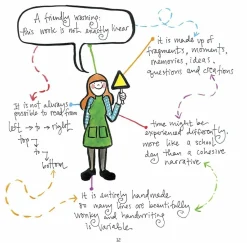 A friendly warning:
this work is not exactly linear
it is made up of
fragments, moments,
memories, ideas,
questions and citations
It is not always
possible to read from
left → to → right
top
to
bottom
time might be
experienced differently,
more like a school
day than a cohesive
narrative
it is entirely handmade
so many lines are beautifully
wonky and handwriting
is variable.